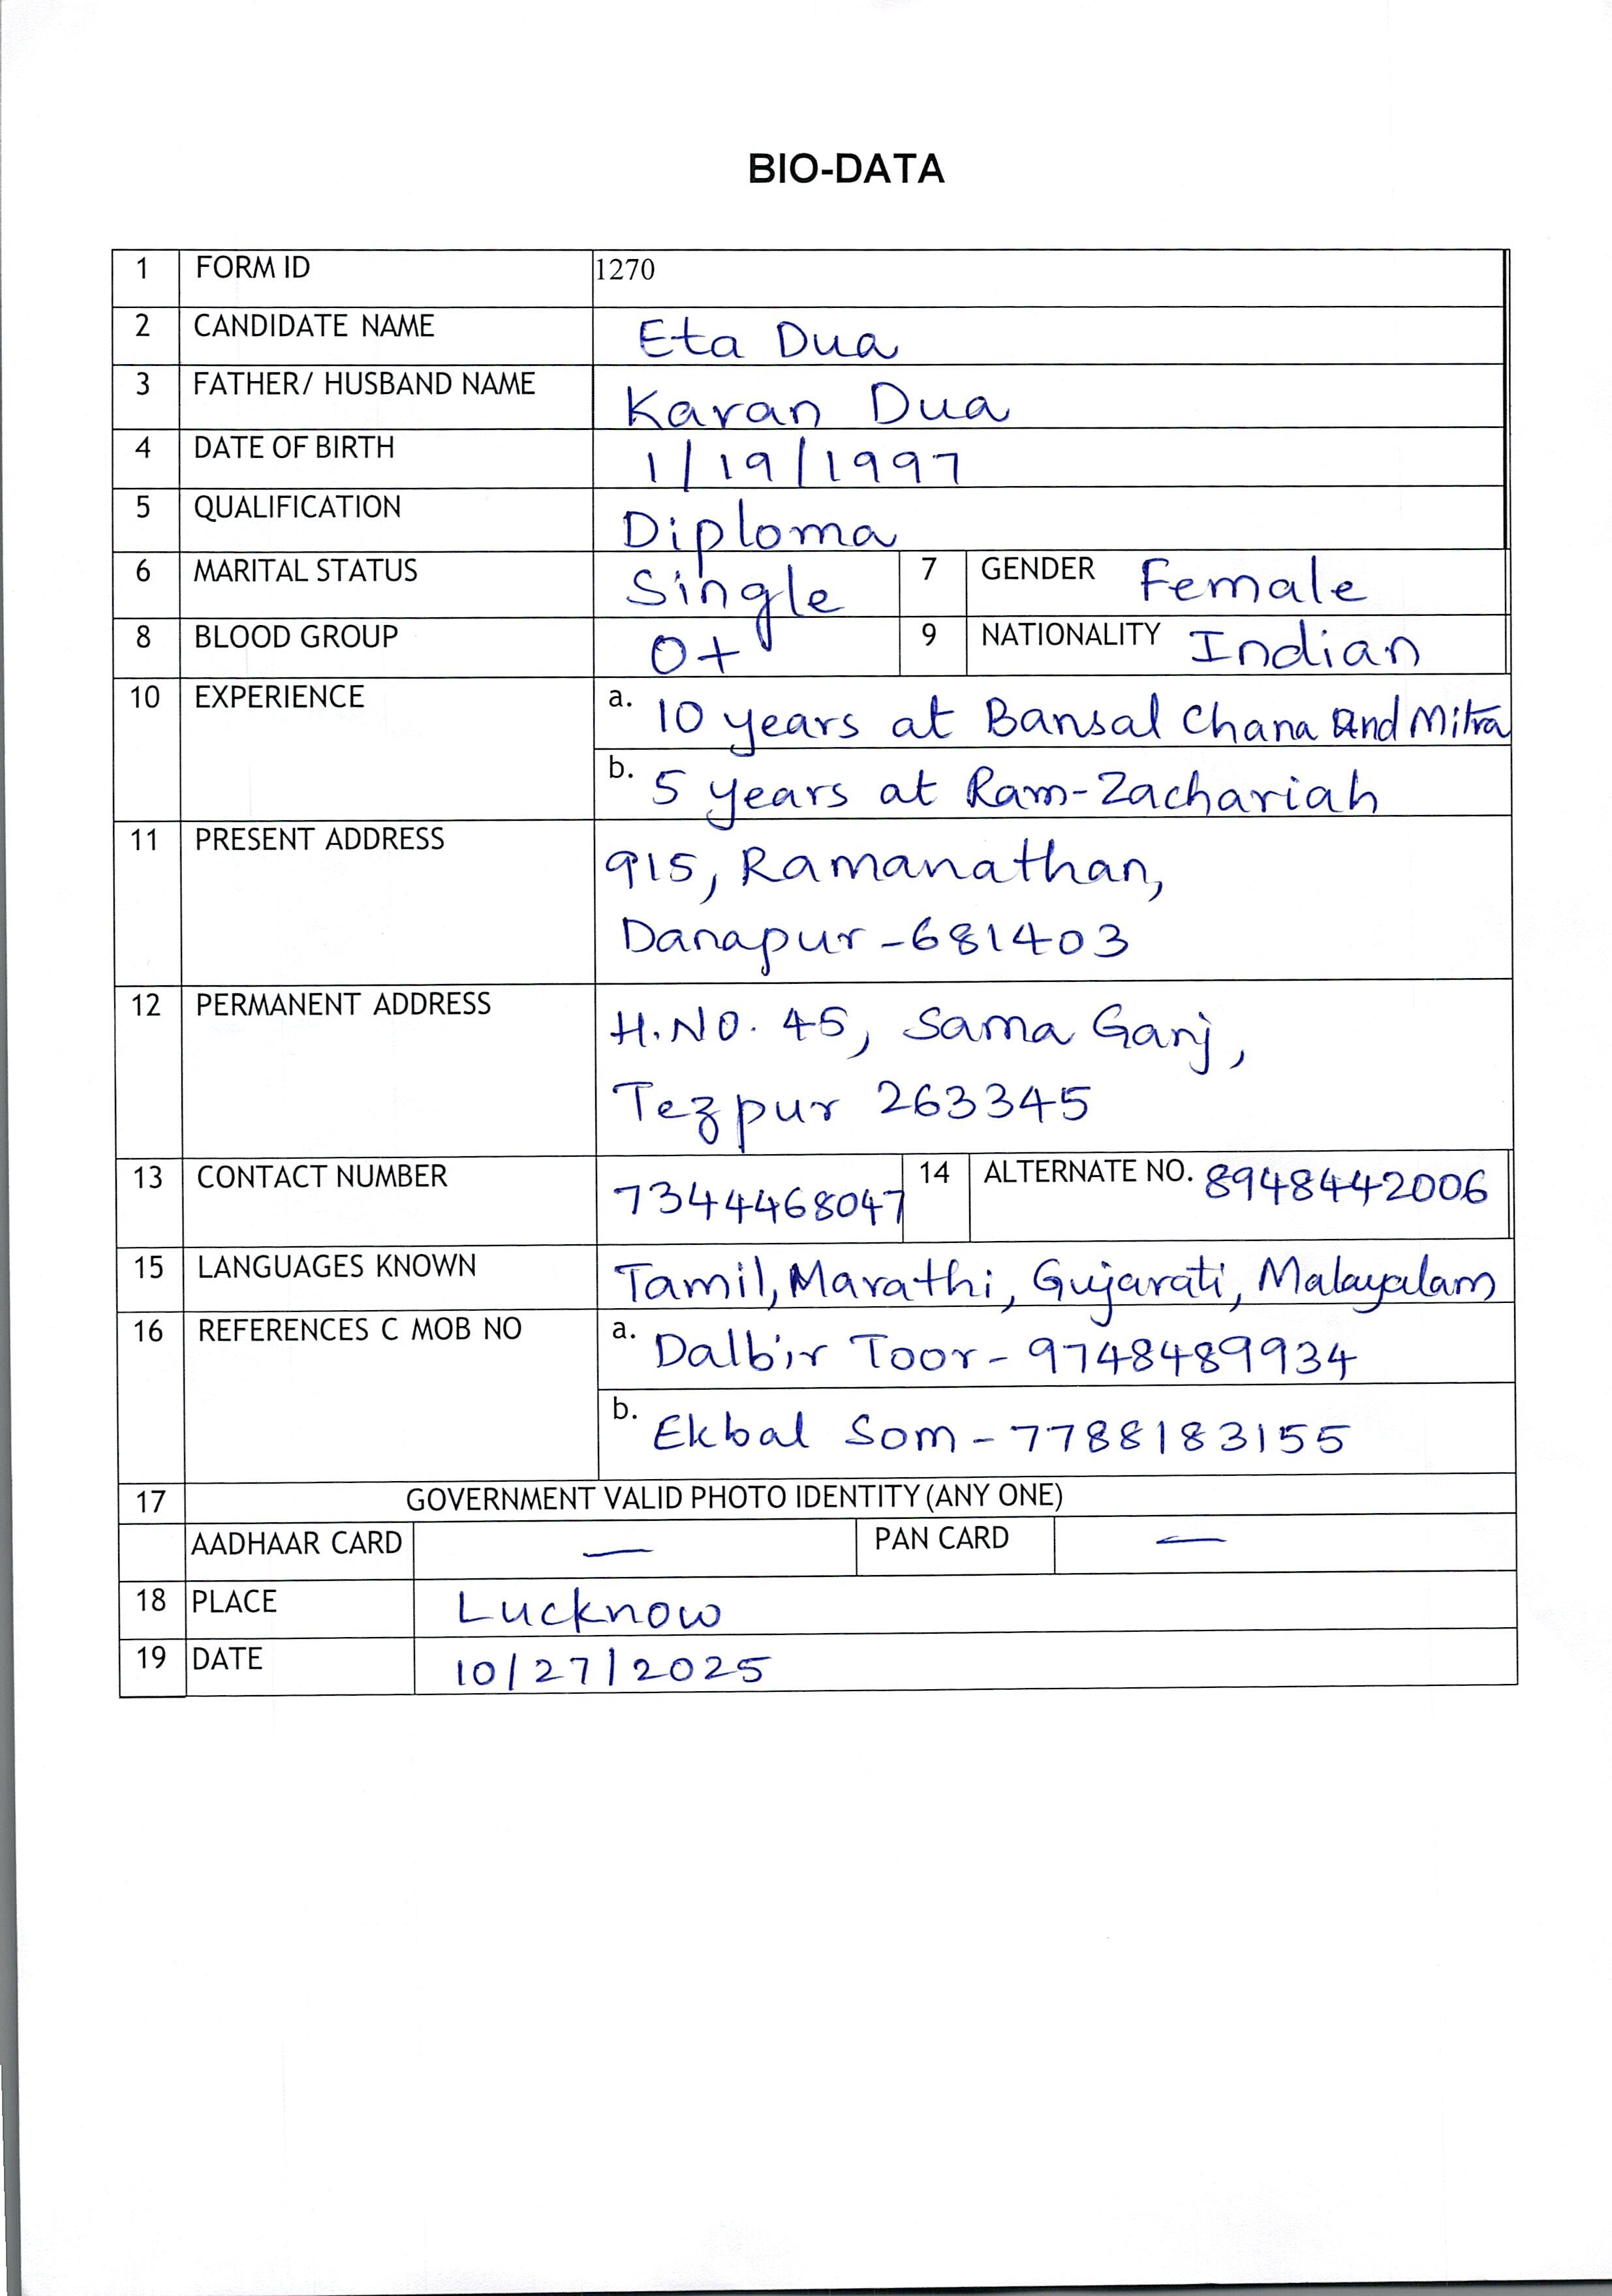 BIO-DATA
1 FORM ID 1270
2 CANDIDATE NAME Eta Dua
3 FATHER/ HUSBAND NAME Karan Dua
4 DATE OF BIRTH 1/19/1997
5 QUALIFICATION Diploma
6 MARITAL STATUS Single 7 GENDER Female
8 BLOOD GROUP O+ 9 NATIONALITY Indian
10 EXPERIENCE a. 10 years at Bansal Chana And Mitra
b. 5 years at Ram-Zachariah
11 PRESENT ADDRESS 915, Ramanathan,
Danapur-681403
12 PERMANENT ADDRESS H.NO. 45, Sama Ganj,
Tezpur 263345
13 CONTACT NUMBER 7344468047 14 ALTERNATE NO. 8948442006
15 LANGUAGES KNOWN Tamil, Marathi, Gujarati, Malayalam
16 REFERENCES C MOB NO a. Dalbir Toor - 9748489934
b. Ekbal Som - 7788183155
17 GOVERNMENT VALID PHOTO IDENTITY (ANY ONE)
AADHAAR CARD — PAN CARD —
18 PLACE Lucknow
19 DATE 10/27/2025